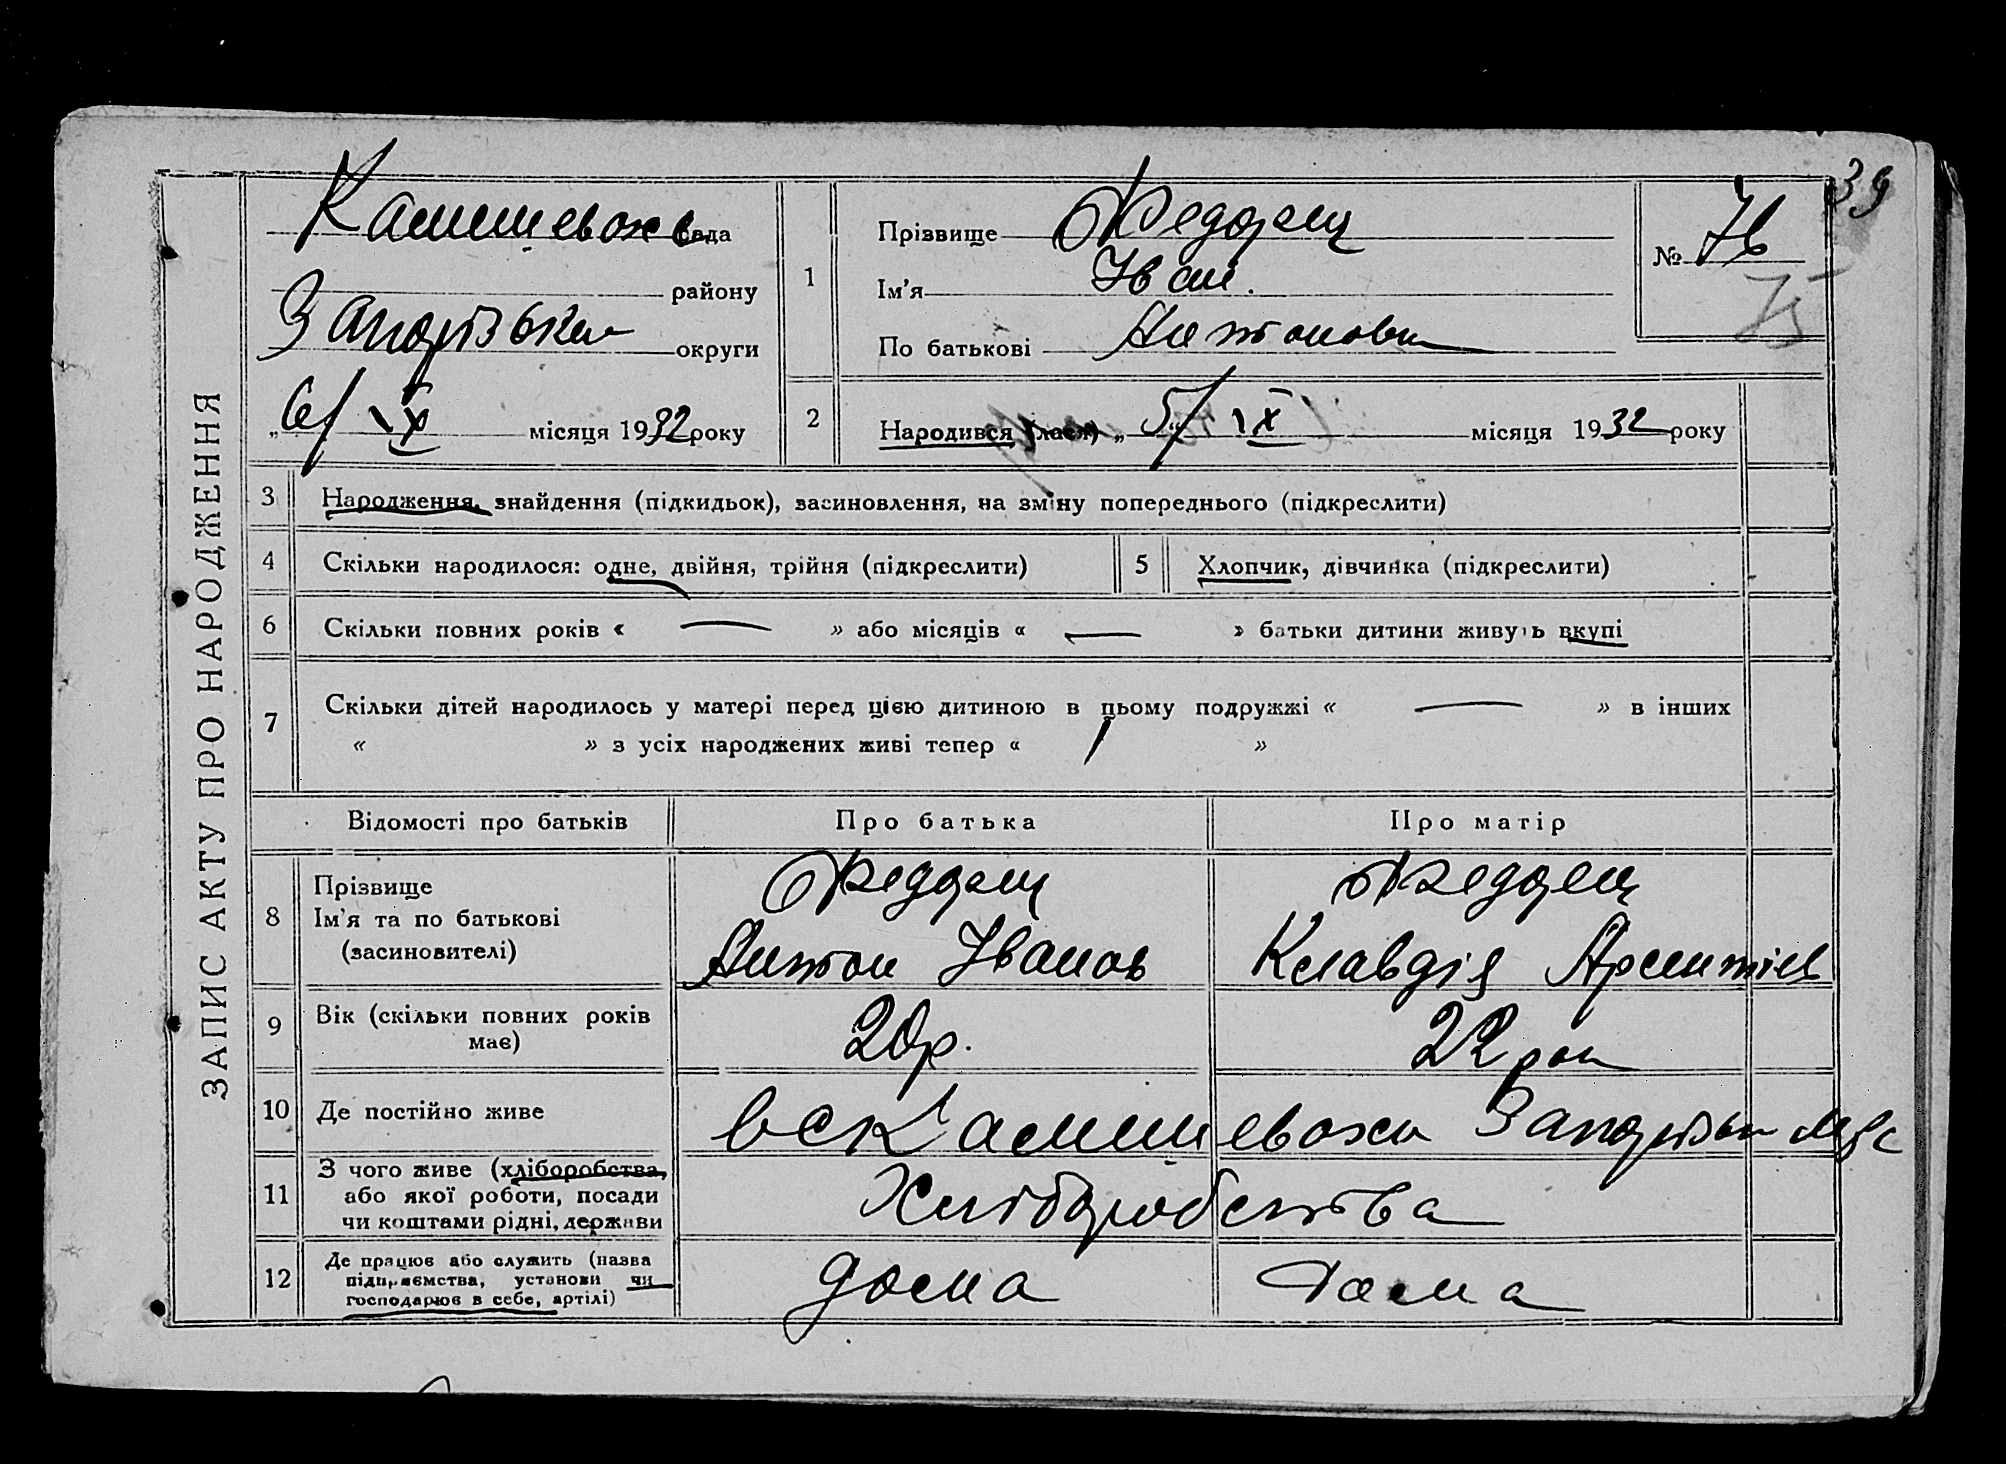 39
ЗАПИС АКТУ ПРО НАРОДЖЕННЯ
Камишеваха рада
району
Запорізька округи
„6/ IX місяця 1932 року
1
Прізвище Федорец
Ім'я Іван.
По батькові Антонович
№ 76
75
2 Народився (лася) „ 5/ IX місяця 1932 року
3 Народження, знайдення (підкидьок), засиновлення, на зміну попереднього (підкреслити)
4 Скільки народилося: одне, двійня, трійня (підкреслити)
5 Хлопчик, дівчинка (підкреслити)
6 Скільки повних років « — » або місяців « — » батьки дитини живуть вкупі
7 Скільки дітей народилось у матері перед цією дитиною в цьому подружжі « — » в інших
« » з усіх народжених живі тепер « 1 »
Відомості про батьків Про батька Про матір
8 Прізвище
Ім'я та по батькові
(засиновителі)
Федорец
Антон Іванов
Федорец
Клавдія
9 Вік (скільки повних років
має)
20р.
22 рок
10 Де постійно живе
в с Камишеваха Запорізьк
11 З чого живе (хліборобства,
або якої роботи, посади
чи коштами рідні, держави
Хліборобства
12 Де працює або служить (назва
підприємства, установи чи
господарює в себе, артілі)
дома
дома